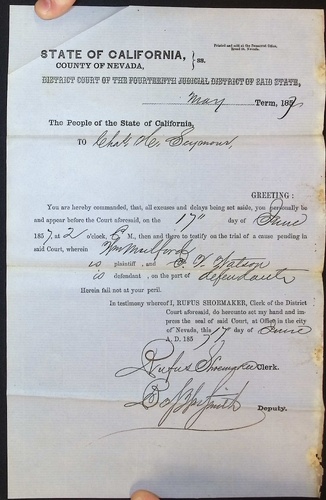 STATE OF CALIFORNIA,
COUNTY OF NEVADA, } ss.
DISTRICT COURT OF THE FOURTEENTH JUDICIAL DISTRICT OF SAID STATE,
May Term, 1857
The People of the State of California,
TO Chas H. Seymour,
GREETING:
You are hereby commanded, that, all excuses and delays being set aside, you personally be
and appear before the Court aforesaid, on the 17" day of June
1857, at 2 o'clock, P. M., then and there to testify on the trial of a cause pending in
said Court, wherein Wm
is plaintiff, and Watson
is defendant, on the part of defendant
Herein fail not at your peril.
In testimony whereof I, RUFUS SHOEMAKER, Clerk of the District
Court aforesaid, do hereunto set my hand and im-
press the seal of said Court, at Office in the city
of Nevada, this 17 day of June
A. D. 1857
Rufus Shoemaker Clerk.
Deputy.